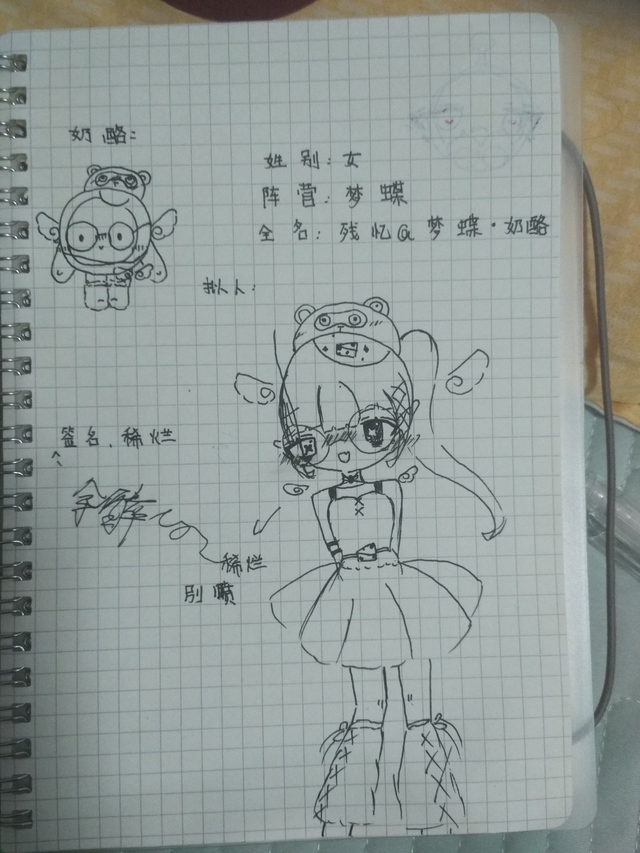 奶酪：
姓别：女
阵营：梦蝶
全名：残忆@梦蝶·奶酪
拟人：
签名．稀烂
稀烂
别喷